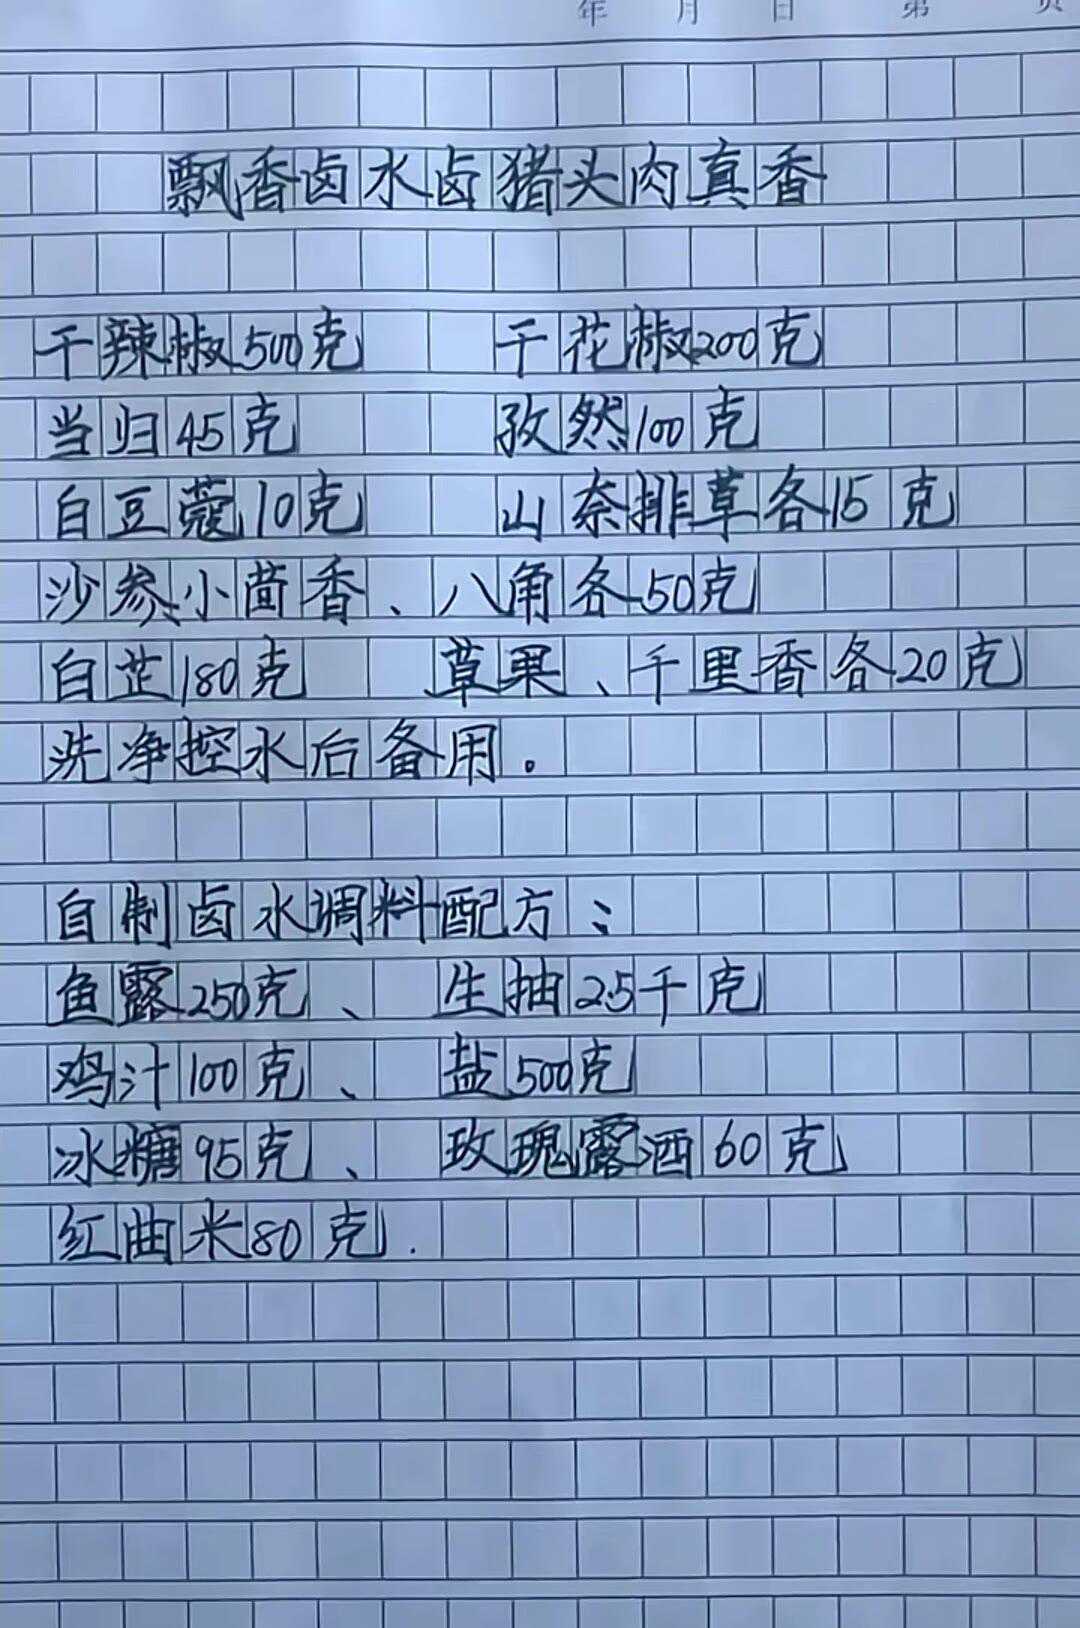 年 月 日 第 页
飘香卤水卤猪头肉真香
干辣椒500克 干花椒200克
当归45克 孜然100克
白豆蔻10克 山奈排草各15克
沙参、小茴香、八角各50克
白芷180克 草果、千里香各20克
洗净控水后备用。
自制卤水调料配方:
鱼露250克、 生抽2.5千克
鸡汁100克、 盐500克
冰糖95克、 玫瑰露酒60克
红曲米80克.